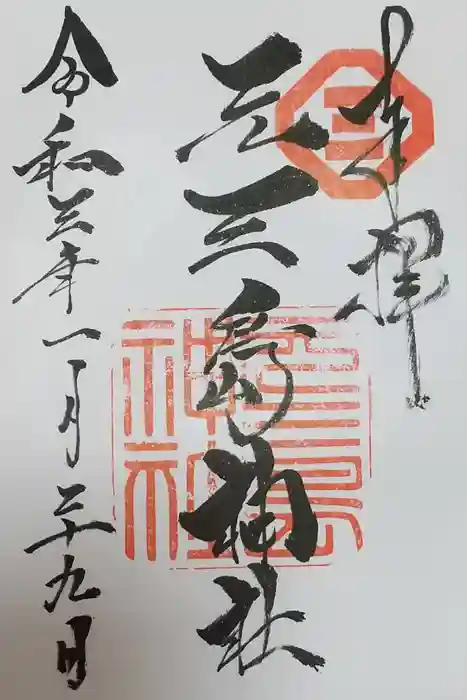 奉拝
三
元三島神社
三島神社
令和三年一月二十九日